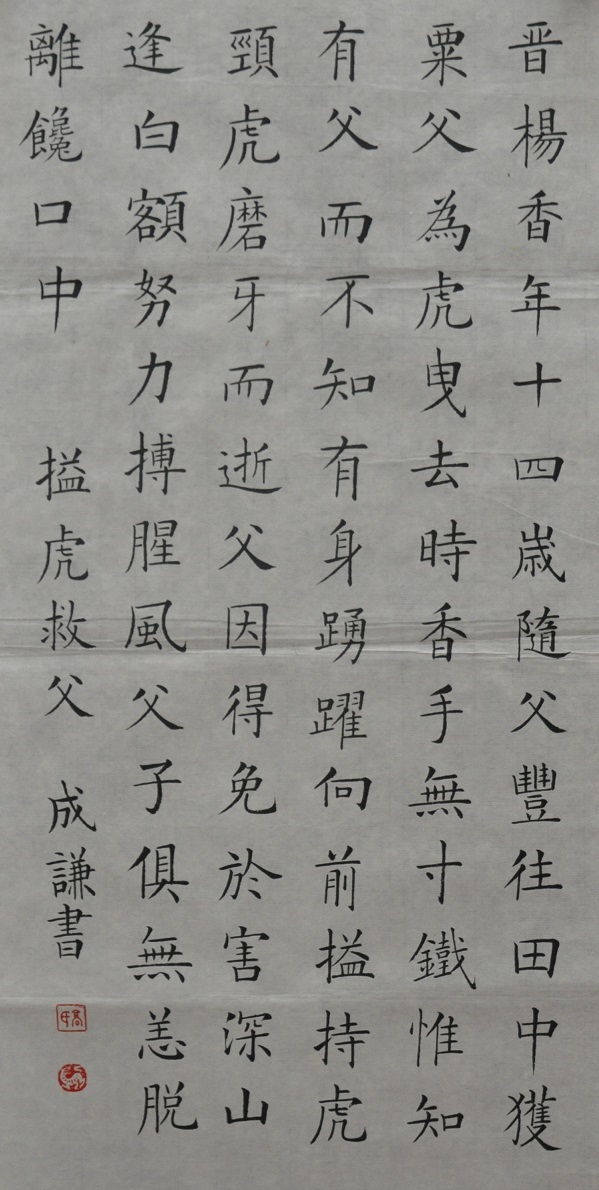 晋楊香年十四歳隨父豐往田中獲
粟父為虎曳去時香手無寸鐵惟知
有父而不知有身踴躍向前搤持虎
頸虎磨牙而逝父因得免於害深山
逢白額努力搏腥風父子俱無恙脱
離饞口中 搤虎救父 成謙書